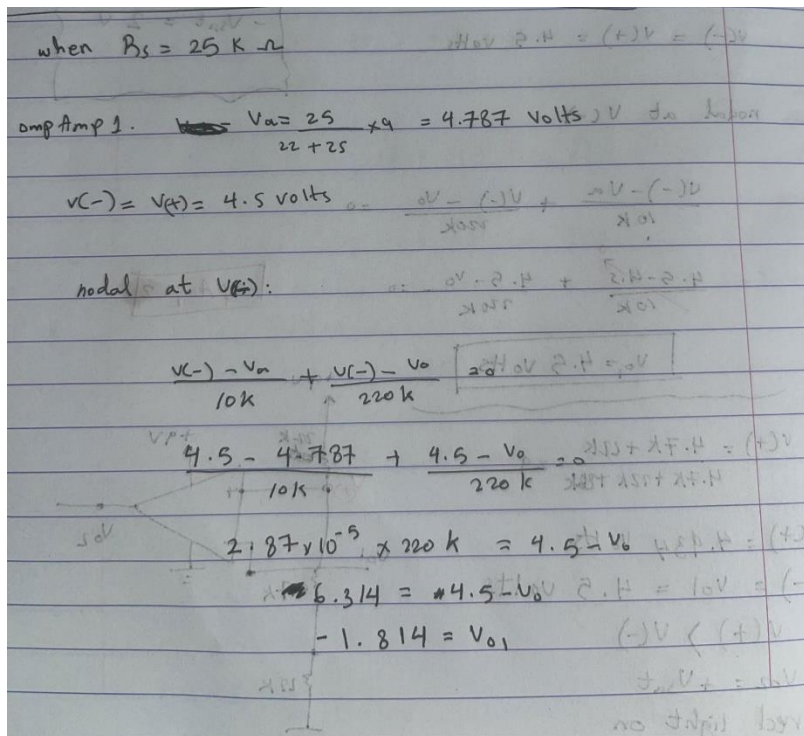 when Rs = 25 K Ω
omp Amp 1. Va = 25 / 22 + 25 x 9 = 4.787 volts
v(-) = v(+) = 4.5 volts
nodal at v(-):
v(-) - Va / 10K + v(-) - Vo / 220K = 0
4.5 - 4.787 / 10K + 4.5 - Vo / 220 K = 0
2.87 x 10^-5 x 220 K = 4.5 - Vo
6.314 = 4.5 - Vo
-1.814 = Vo1